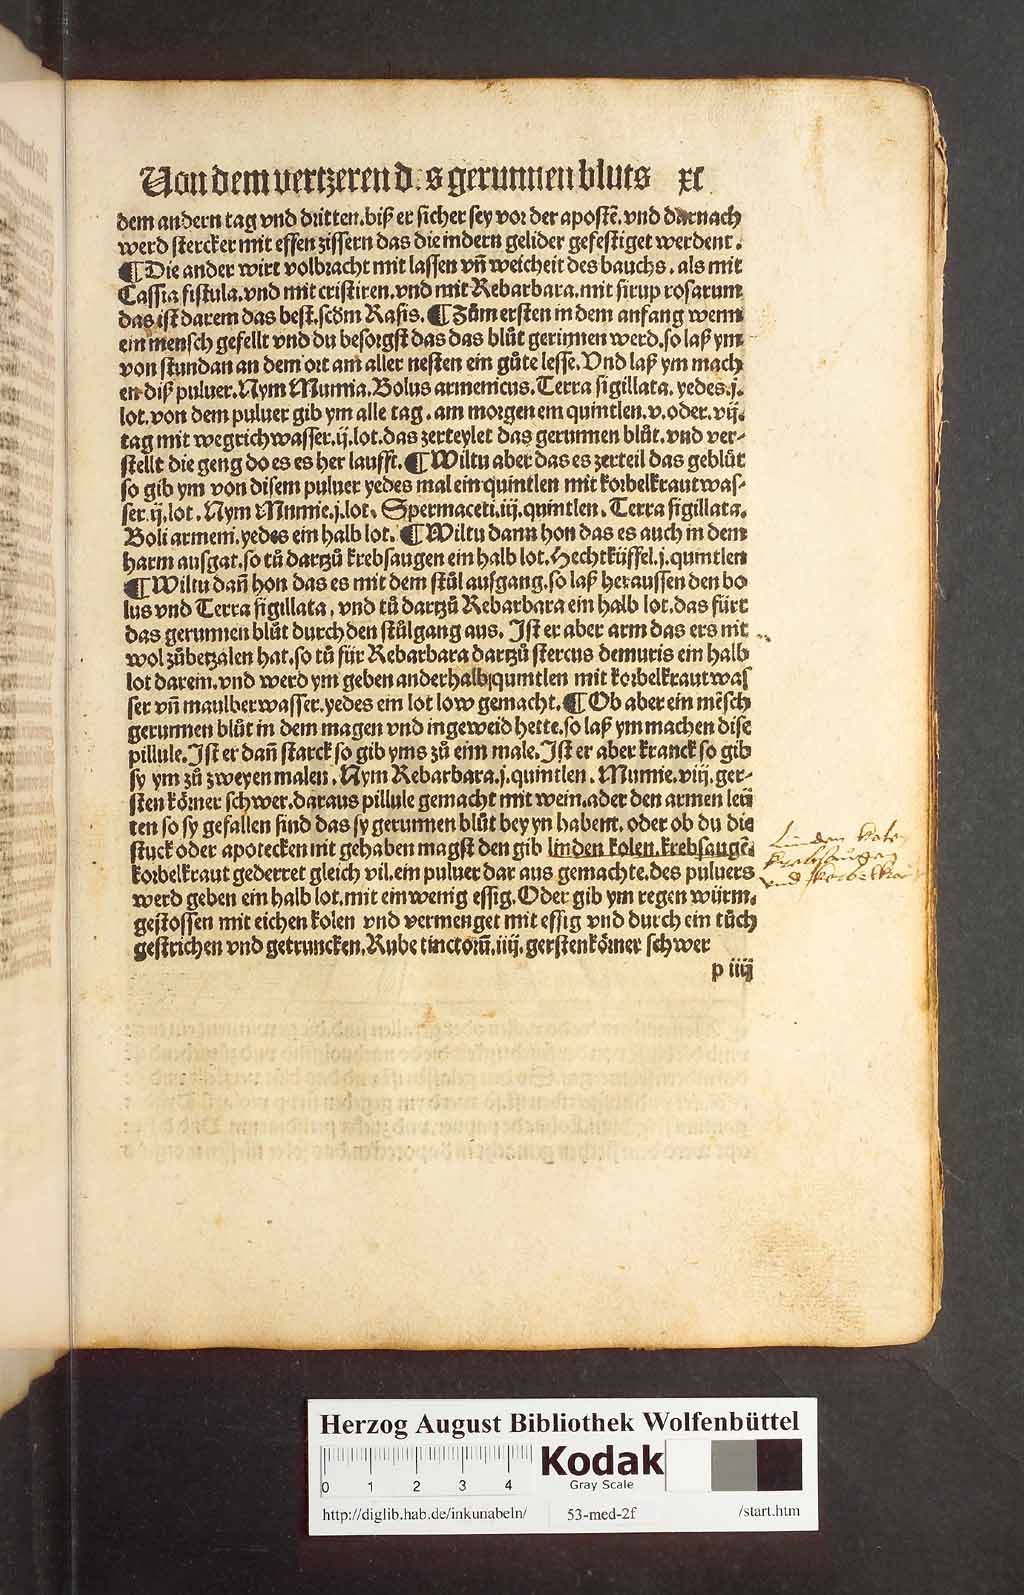 Von dem vertzeren d:s gerunnen bluts xc
dem andern tag vnd dritten. biß er sicher sey vor der apostē. vnd darnach
werd stercker mit essen zissern das die indern gelider gefestiget werdent.
¶ Die ander wirt volbracht mit lassen vn̄ weicheit des bauchs. als mit
Cassia fistula. vnd mit cristiren. vnd mit Rebarbara. mit sirup rosarum
das ist darem das best. scd̄m Rasis. ¶ Zům ersten in dem anfang wenn
ein mensch gefellt vnd du besorgst das das blůt gerinnen werd. so laß ym
von stundan an dem ort am aller nesten ein gůte lesse. Vnd laß ym mach
en diß puluer. Nym Mumia. Bolus armenicus. Terra sigillata. yedes. j.
lot. von dem puluer gib ym alle tag. am morgen em quintlen. v. oder. vij.
tag mit wegrich wasser. ij. lot. das zerteylet das gerunnen blůt. vnd ver-
stellt die geng do es es her laufft. ¶ Wiltu aber das es zerteil das geblůt
so gib ym von disem puluer yedes mal ein quintlen mit korbelkraut was-
ser. ij. lot. Nym Mumie. j. lot. Spermaceti. iij. quintlen. Terra sigillata.
Boli armeni. yedes ein halb lot. ¶ Wiltu dann hon das es auch in dem
harm ausgat. so tů dartzů krebsaugen ein halb lot. Hechtküffel. j. quintlen
¶ Wiltu dan̄ hon das es mit dem stůl ausgang. so laß heraussen den bo
lus vnd Terra sigillata, vnd tů dartzů Rebarbara ein halb lot. das fürt
das gerunnen blůt durch den stůlgang aus. Ist er aber arm das ers nit
wol zůbetzalen hat. so tů für Rebarbara dartzů stercus demuris ein halb
lot darein. vnd werd ym geben anderhalb quintlen mit korbelkraut was
ser vn̄ maulber wasser. yedes ein lot low gemacht. ¶ Ob aber ein mēsch
gerunnen blůt in dem magen vnd ingeweid hette. so laß ym machen dise
pillule. Ist er dan̄ starck so gib yms zů eim male. Ist er aber kranck so gib
sy ym zů zweyen malen. Nym Rebarbara. j. quintlen. Mumie. viij. ger-
sten körner schwer. daraus pillule gemacht mit wein. ader den armen leü
ten so sy gefallen sind das sy gerunnen blůt bey yn habent. oder ob du die
stuck oder apotecken nit gehaben magst den gib linden kolen. krebsaugē.
korbelkraut gederret gleich vil. ein puluer dar aus gemachte. des puluers
werd geben ein halb lot. mit ein wenig essig. Oder gib ym regen würm.
gestossen mit eichen kolen vnd vermenget mit essig vnd durch ein tůch
gestrichen vnd getruncken. Rube tinctorū. iiij. gersten körner schwer
p iiij
Linden
Krebsaugen
vnd
Herzog August Bibliothek Wolfenbüttel
0 1 2 3 4
Kodak
Gray Scale
http://diglib.hab.de/inkunabeln/ 53-med-2f /start.htm